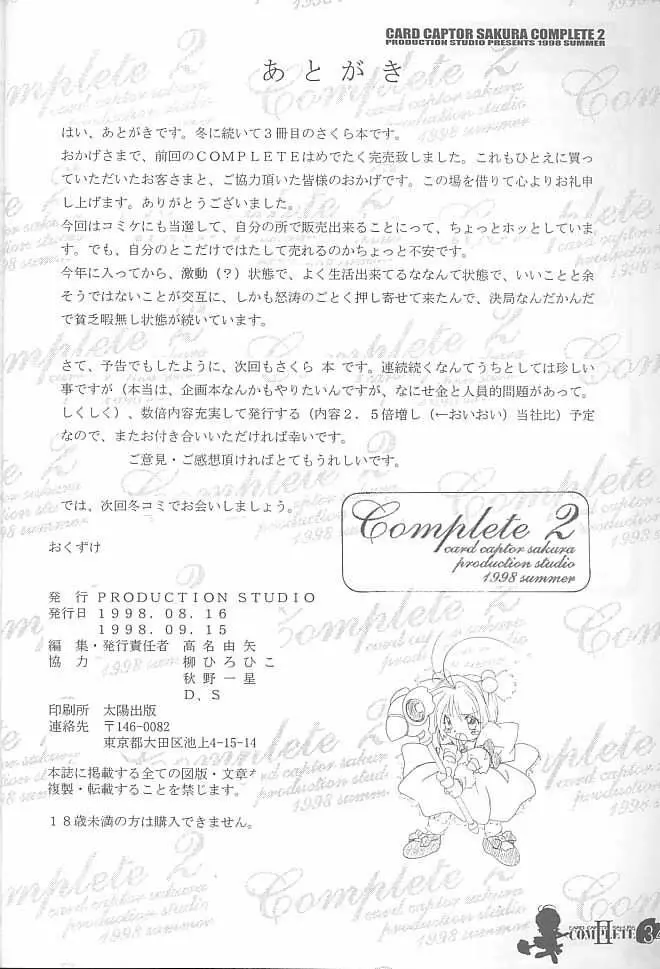 CARD CAPTOR SAKURA COMPLETE 2
PRODUCTION STUDIO PRESENTS 1998 SUMMER
あとがき
はい、あとがきです。冬に続いて３冊目のさくら本です。
おかげさまで、前回のＣＯＭＰＬＥＴＥはめでたく完売致しました。これもひとえに買っ
ていただいたお客さまと、ご協力頂いた皆様のおかげです。この場を借りて心よりお礼申
し上げます。ありがとうございました。
今回はコミケにも当選して、自分の所で販売出来ることにって、ちょっとホッとしていま
す。でも、自分のとこだけではたして売れるのかちょっと不安です。
今年に入ってから、激動（？）状態で、よく生活出来てるななんて状態で、いいことと余
そうではないことが交互に、しかも怒涛のごとく押し寄せて来たんで、決局なんだかんだ
で貧乏暇無し状態が続いています。
さて、予告でもしたように、次回もさくら 本 です。連続続くなんてうちとしては珍しい
事ですが（本当は、企画本なんかもやりたいんですが、なにせ金と人員的問題があって。
しくしく）、数倍内容充実して発行する（内容２．５倍増し（←おいおい）当社比）予定
なので、またお付き合いいただければ幸いです。
ご意見・ご感想頂ければとてもうれしいです。
では、次回冬コミでお会いしましょう。
Complete 2
card captor sakura
production studio
1998 summer
おくずけ
発　行　ＰＲＯＤＵＣＴＩＯＮ ＳＴＵＤＩＯ
発行日　１９９８．０８．１６
１９９８．０９．１５
編　集・発行責任者　高名由矢
協　力　柳ひろひこ
秋野一星
Ｄ．Ｓ
印刷所　太陽出版
連絡先　〒146-0082
東京都大田区池上4-15-14
本誌に掲載する全ての図版・文章
複製・転載することを禁じます。
１８歳未満の方は購入できません。
CARD CAPTOR SAKURA
COMPLETE II
34